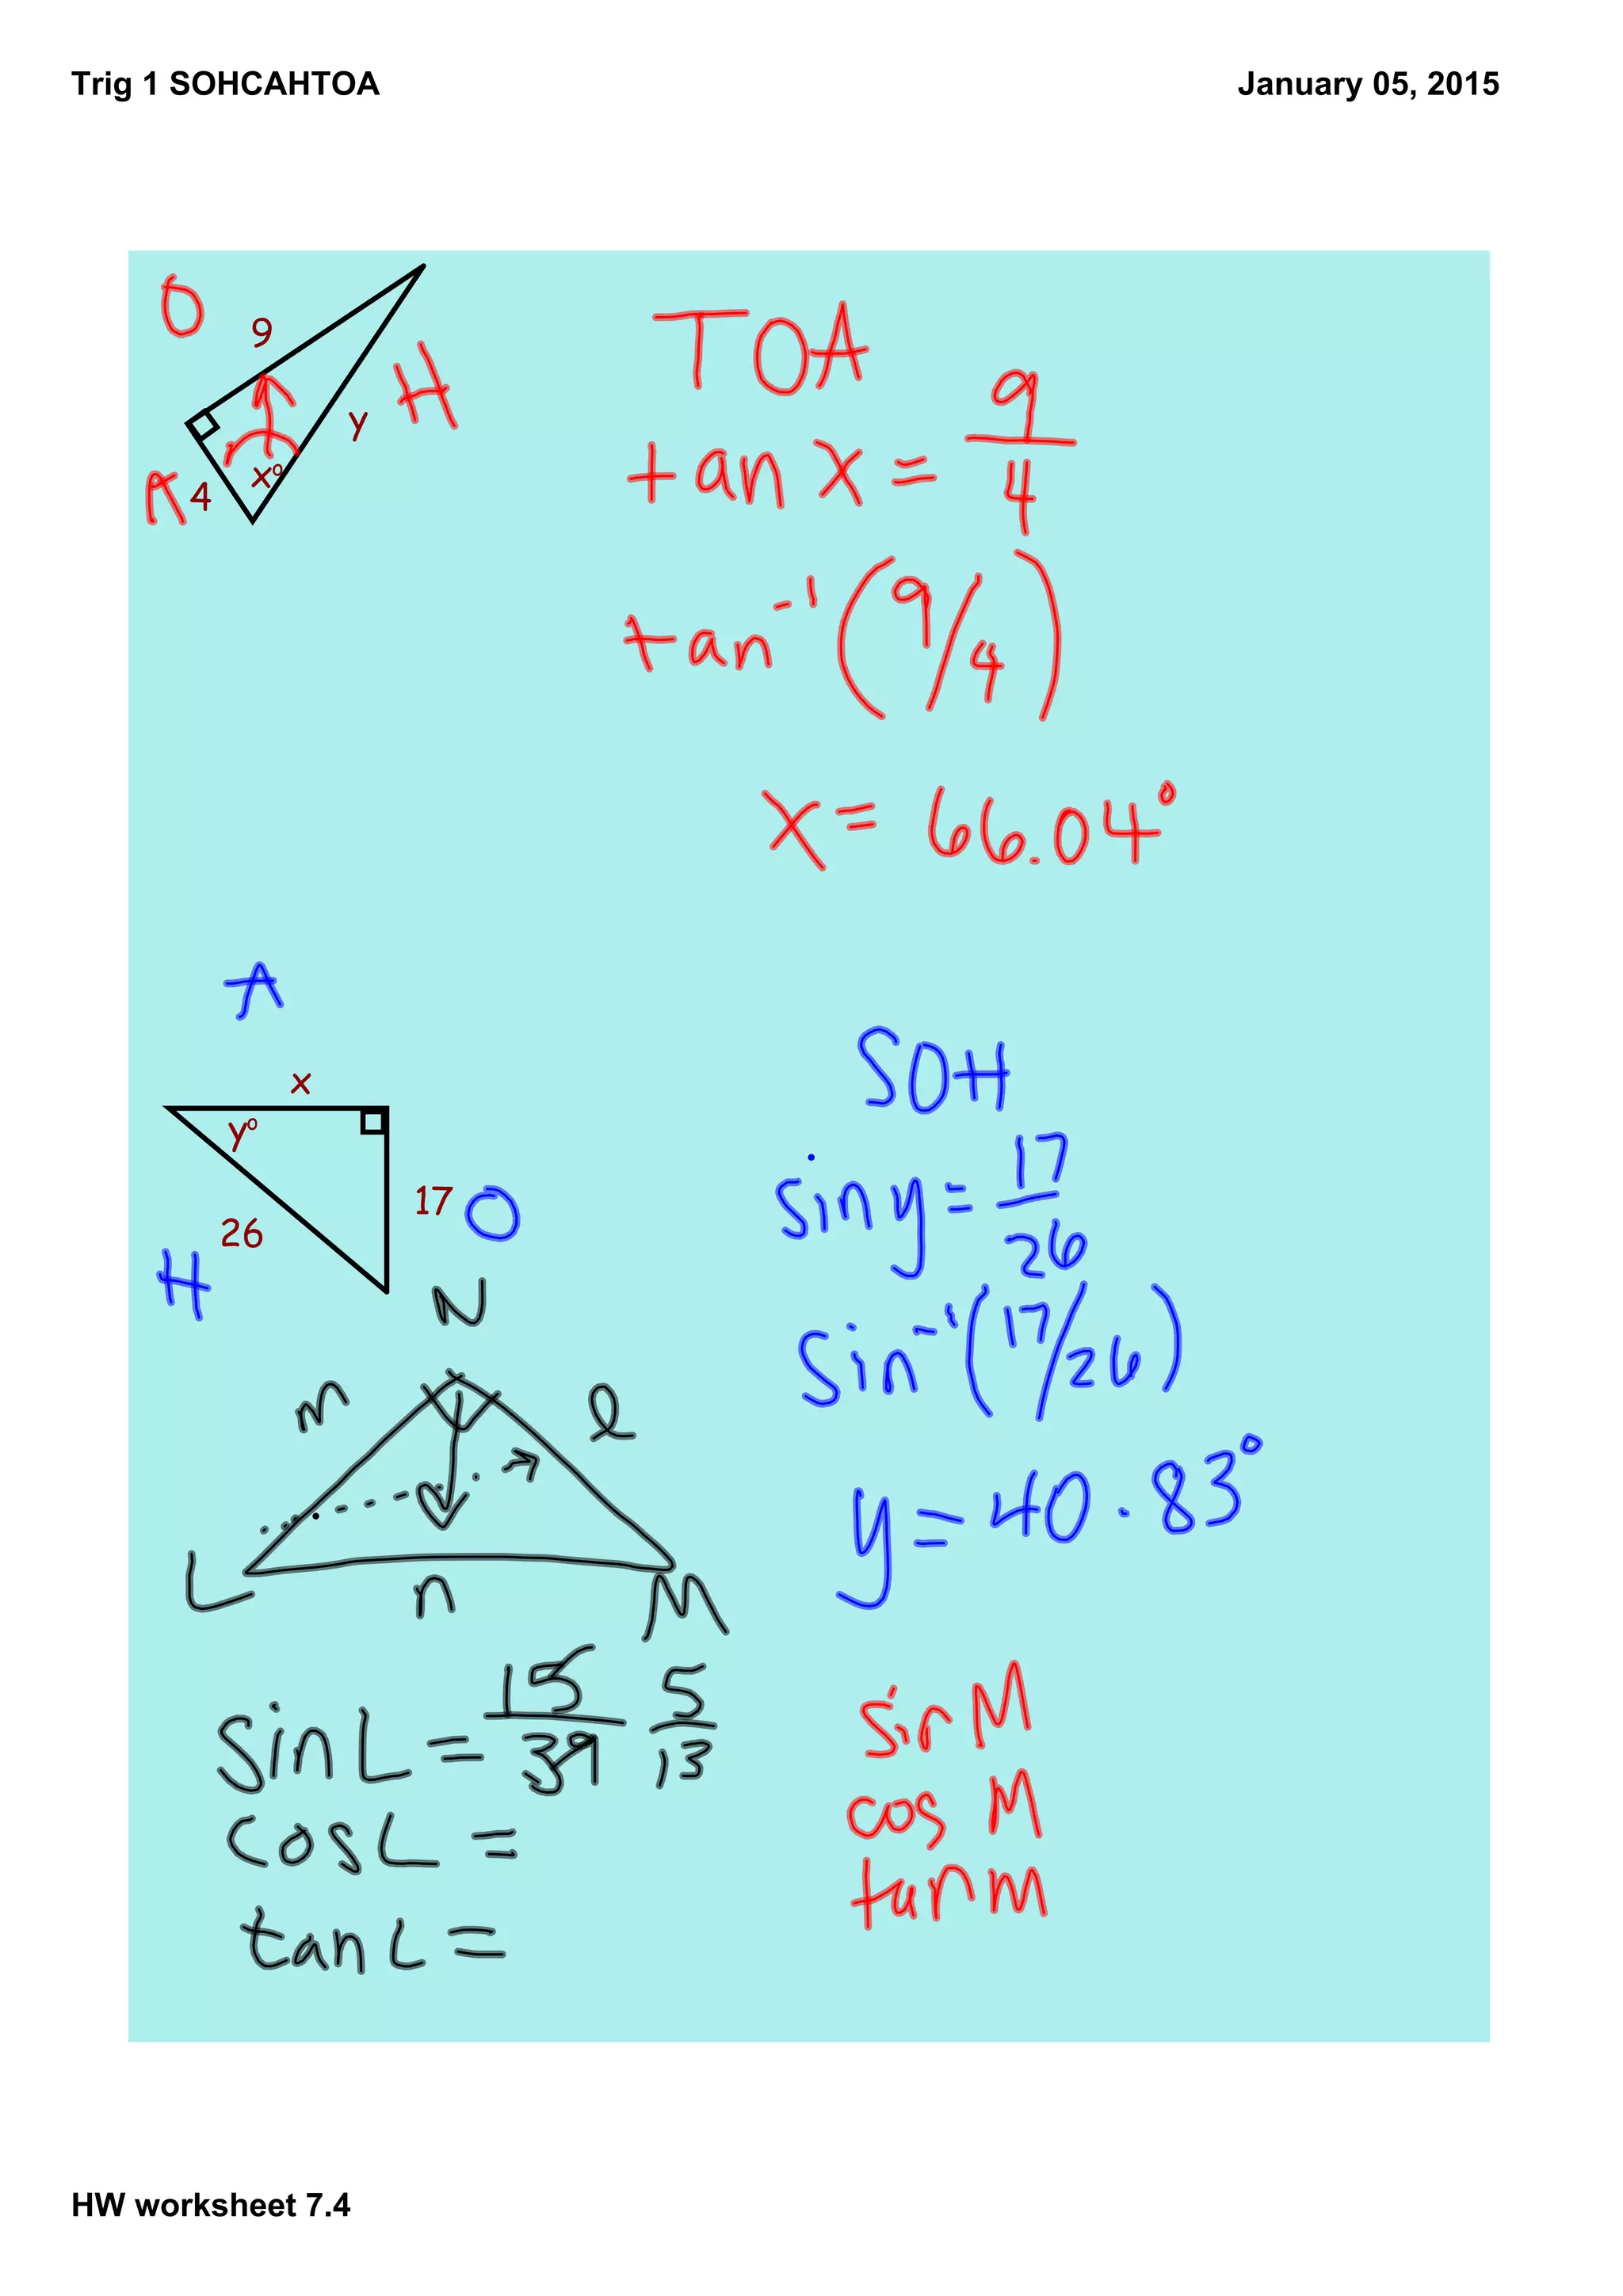 Trig 1 SOHCAHTOA
January 05, 2015
O
9
H
y
x⁰
A
4
TOA
tan x = 9/4
tan⁻¹(9/4)
x = 66.04°
A
x
y⁰
17 O
26
H
SOH
sin y = 17/26
sin⁻¹(17/26)
y = 40.83°
N
m
l
L
n
M
sin L = 15/39 5/13
cos L =
tan L =
sin M
cos M
tan M
HW worksheet 7.4